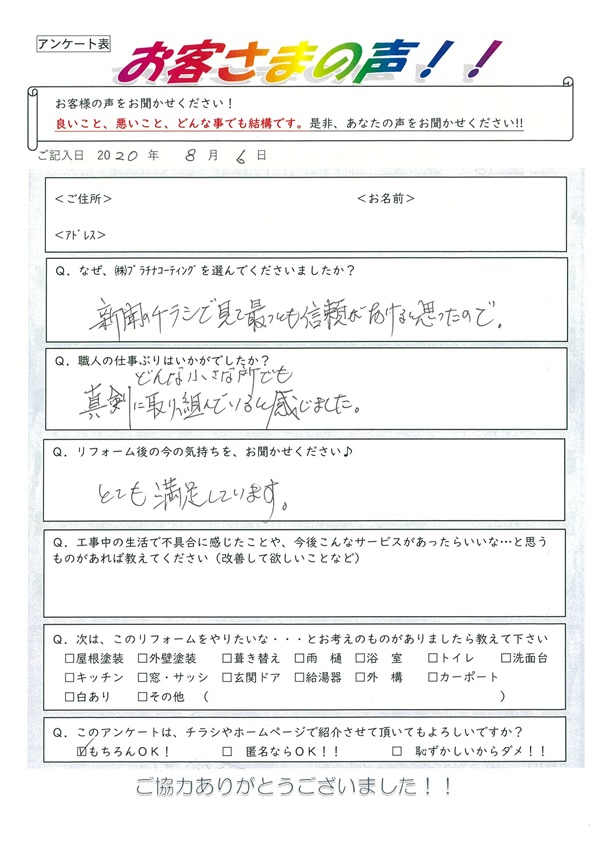 アンケート表
お客さまの声！！
お客様の声をお聞かせください！
良いこと、悪いこと、どんな事でも結構です。是非、あなたの声をお聞かせください!!
ご記入日 2020 年 8 月 6 日
＜ご住所＞ ＜お名前＞
＜ｱﾄﾞﾚｽ＞
Q．なぜ、㈱ﾌﾟﾗﾁﾅｺｰﾃｨﾝｸﾞを選んでくださいましたか？
新聞のチラシで見て最っとも信頼がおけると思ったので。
Q．職人の仕事ぶりはいかがでしたか？
どんな小さな所でも
真剣に取り組んでいると感じました。
Q．リフォーム後の今の気持ちを、お聞かせください♪
とても満足しています。
Q．工事中の生活で不具合に感じたことや、今後こんなサービスがあったらいいな…と思う
ものがあれば教えてください（改善して欲しいことなど）
Q．次は、このリフォームをやりたいな・・・とお考えのものがありましたら教えて下さい
□屋根塗装 □外壁塗装 □葺き替え □雨 樋 □浴 室 □トイレ □洗面台
□キッチン □窓・サッシ □玄関ドア □給湯器 □外 構 □カーポート
□白あり □その他 （ ）
Q．このアンケートは、チラシやホームページで紹介させて頂いてもよろしいですか？
☑もちろんOK！ □ 匿名ならOK！！ □ 恥ずかしいからダメ！！
ご協力ありがとうございました！！